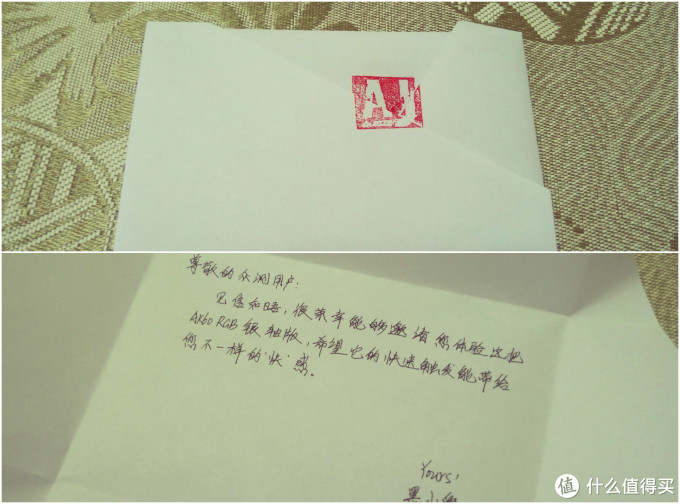 AJ
尊敬的众测用户:
见信如晤,很荣幸能够邀请您体验这把
AK60 RGB银轴版,希望它的快速触发能带给
您不一样的'快'感。
Yours,
黑小
值 什么值得买